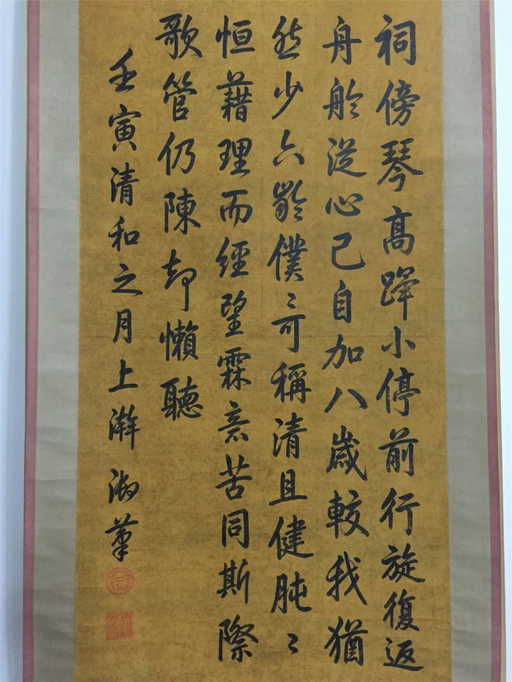 祠傍琴高蹕小停前行旋復返
舟舲從心己自加八歲較我猶
然少六齡僕〻可稱清且健肫〻
恒藉理而經望霖意苦同斯際
歌管仍陳却懶聽
壬寅清和之月上澣御筆